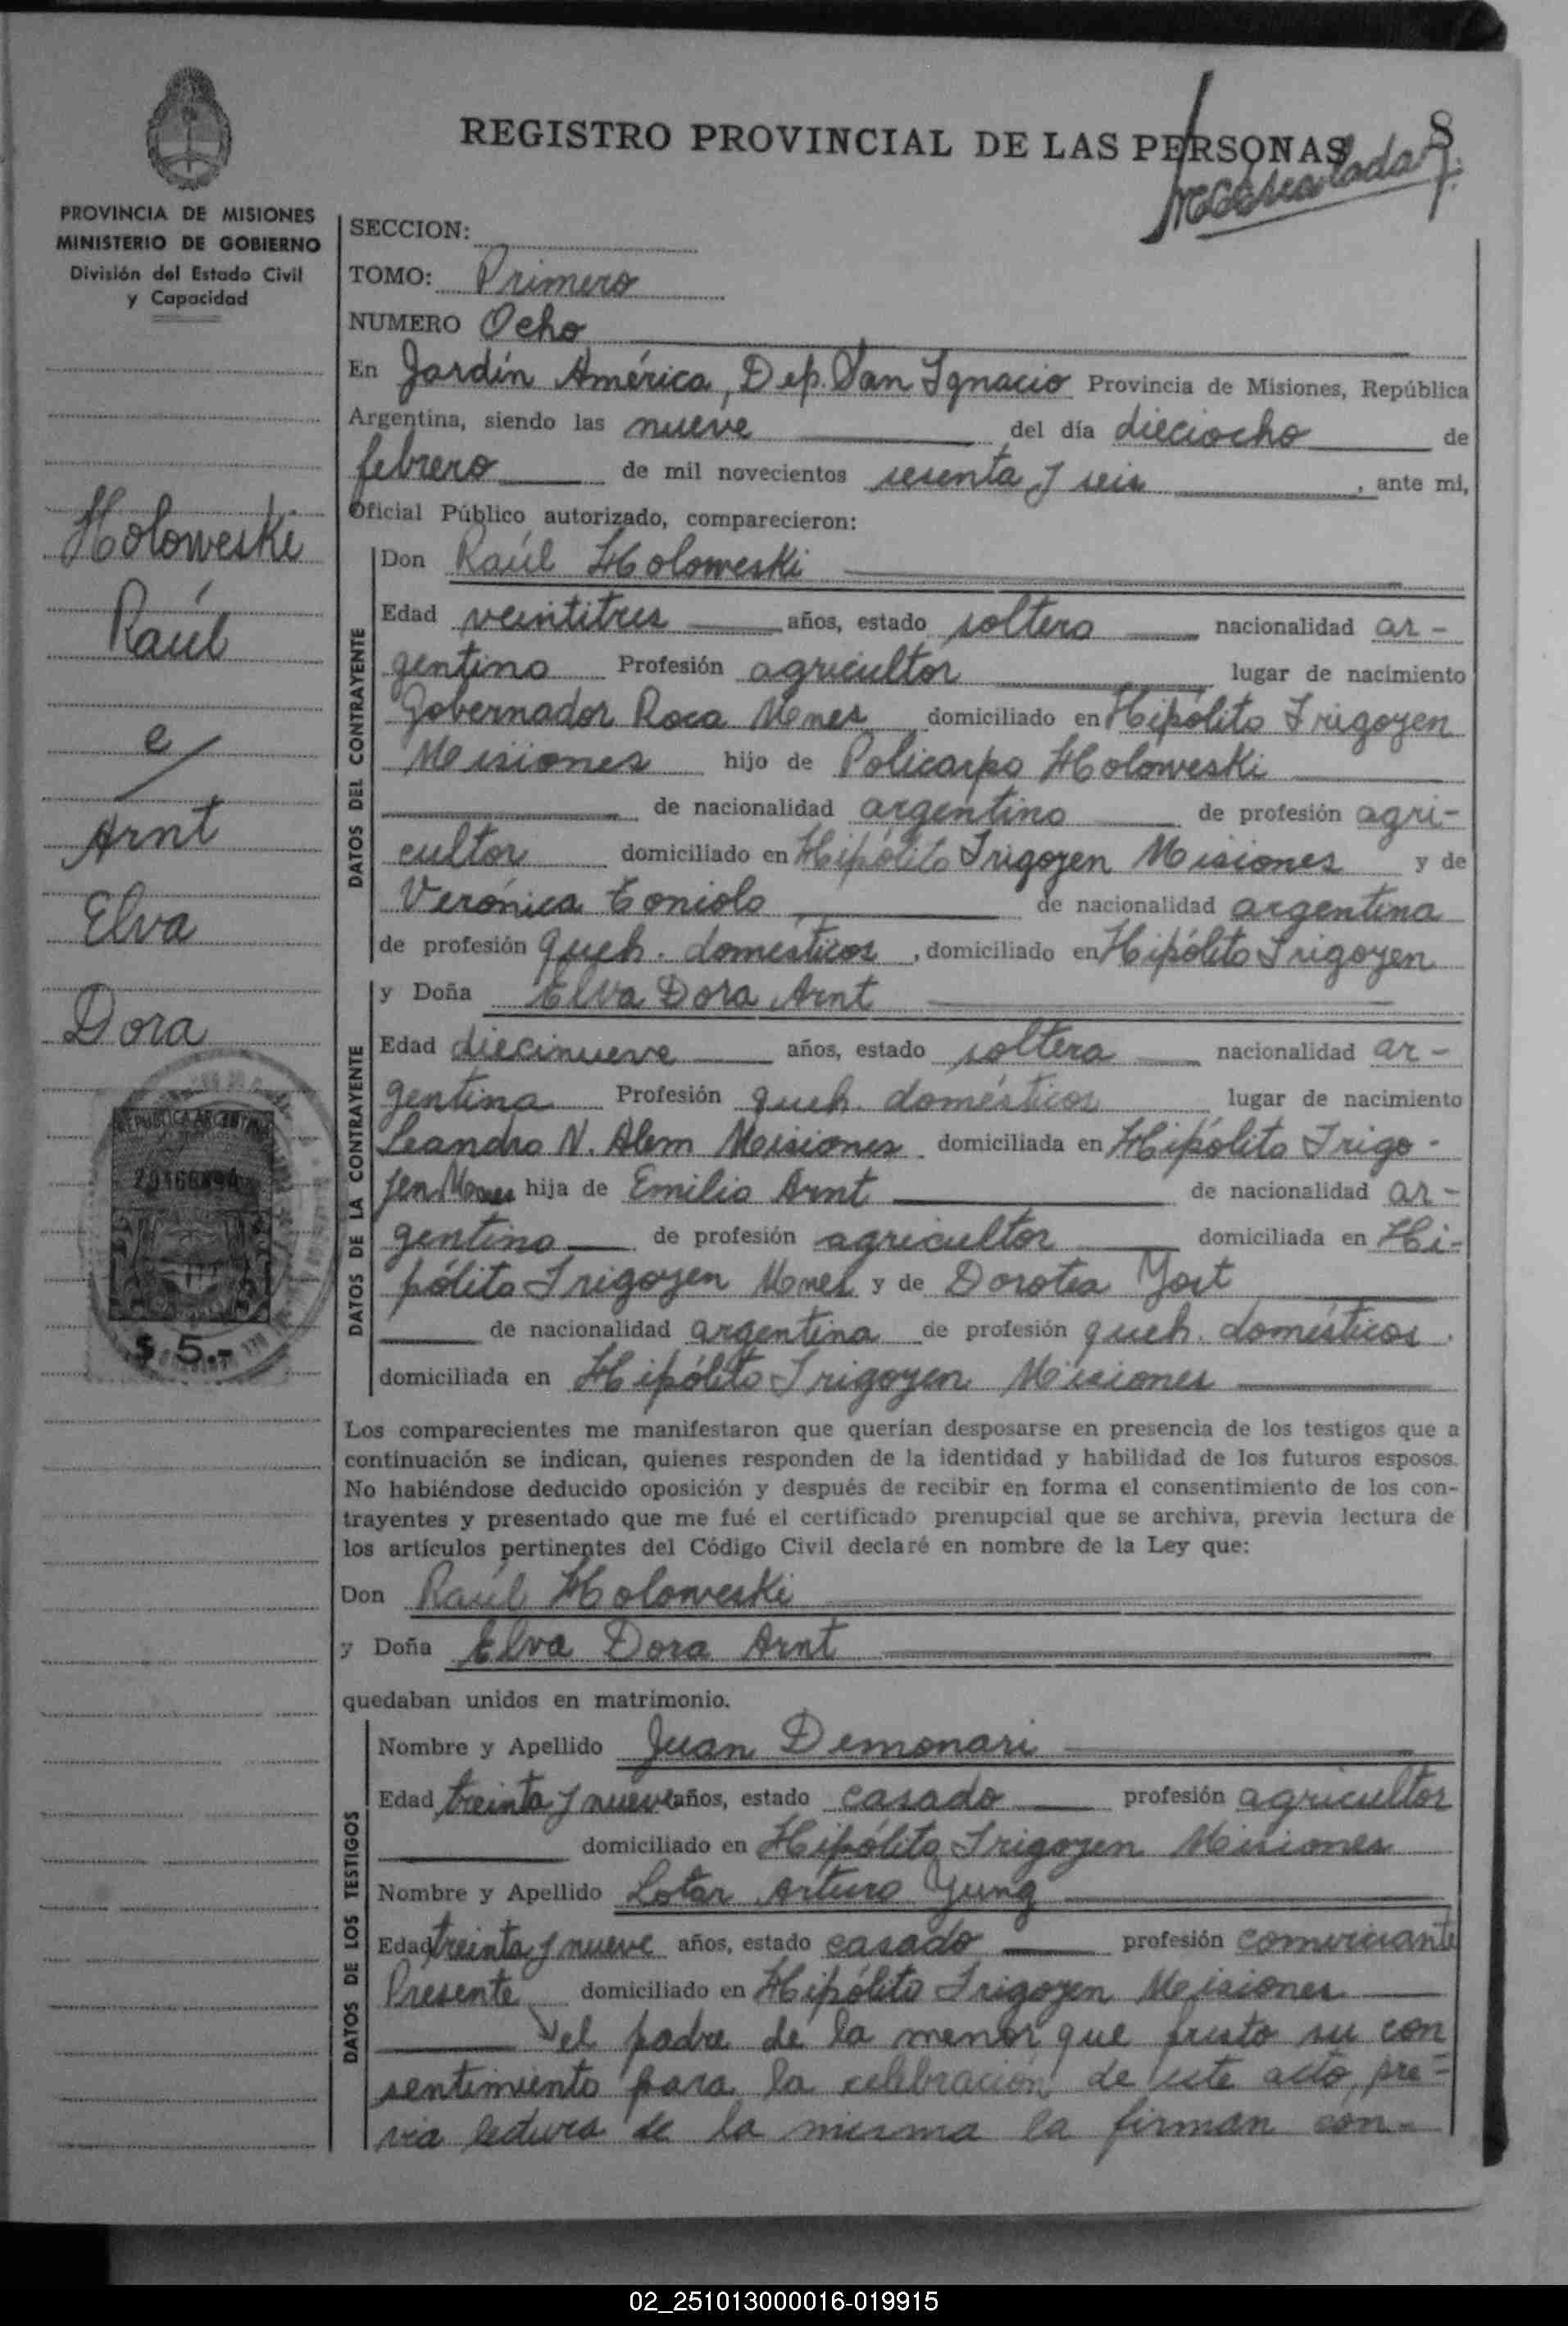 REGISTRO PROVINCIAL DE LAS PERSONAS
8
PROVINCIA DE MISIONES
MINISTERIO DE GOBIERNO
División del Estado Civil
y Capacidad
Holoweski
Raúl
e/
Arnt
Elva
Dora
REPUBLICA ARGENTINA
$.5.-
SECCION:
TOMO: Primero
NUMERO Ocho
En Jardín América, Dep. San Ignacio Provincia de Misiones, República
Argentina, siendo las nueve del día dieciocho de
febrero de mil novecientos sesenta y seis, ante mi,
Oficial Público autorizado, comparecieron:
DATOS DEL CONTRAYENTE
Don Raúl Holoweski
Edad veintitres años, estado soltero nacionalidad ar-
gentino Profesión agricultor lugar de nacimiento
Gobernador Roca Mnes domiciliado en Hipólito Irigoyen
Misiones hijo de Policarpo Holoweski
de nacionalidad argentino de profesión agri-
cultor domiciliado en Hipólito Irigoyen Misiones y de
Verónica Toniolo de nacionalidad argentina
de profesión queh. domésticos, domiciliado en Hipólito Irigoyen
DATOS DE LA CONTRAYENTE
y Doña Elva Dora Arnt
Edad diecinueve años, estado soltera nacionalidad ar-
gentina Profesión queh. domésticos lugar de nacimiento
Leandro N. Alem Misiones domiciliada en Hipólito Irigo-
yen Mnes hija de Emilio Arnt de nacionalidad ar-
gentino de profesión agricultor domiciliada en Hi-
pólito Irigoyen Mnes y de Dorotea Yost
de nacionalidad argentina de profesión queh. domésticos.
domiciliada en Hipólito Irigoyen Misiones
Los comparecientes me manifestaron que querían desposarse en presencia de los testigos que a
continuación se indican, quienes responden de la identidad y habilidad de los futuros esposos.
No habiéndose deducido oposición y después de recibir en forma el consentimiento de los con-
trayentes y presentado que me fué el certificado prenupcial que se archiva, previa lectura de
los artículos pertinentes del Código Civil declaré en nombre de la Ley que:
Don Raúl Holoweski
y Doña Elva Dora Arnt
quedaban unidos en matrimonio.
DATOS DE LOS TESTIGOS
Nombre y Apellido Juan Demonari
Edad treinta y nueve años, estado casado profesión agricultor
domiciliado en Hipólito Irigoyen Misiones
Nombre y Apellido Lotar Arturo Yung
Edad treinta y nueve años, estado casado profesión comerciante
Presente domiciliado en Hipólito Irigoyen Misiones
el padre de la menor que presto su con
sentimiento para la celebración de este acto, pre-
via lectura de la misma la firman con-
02_251013000016-019915